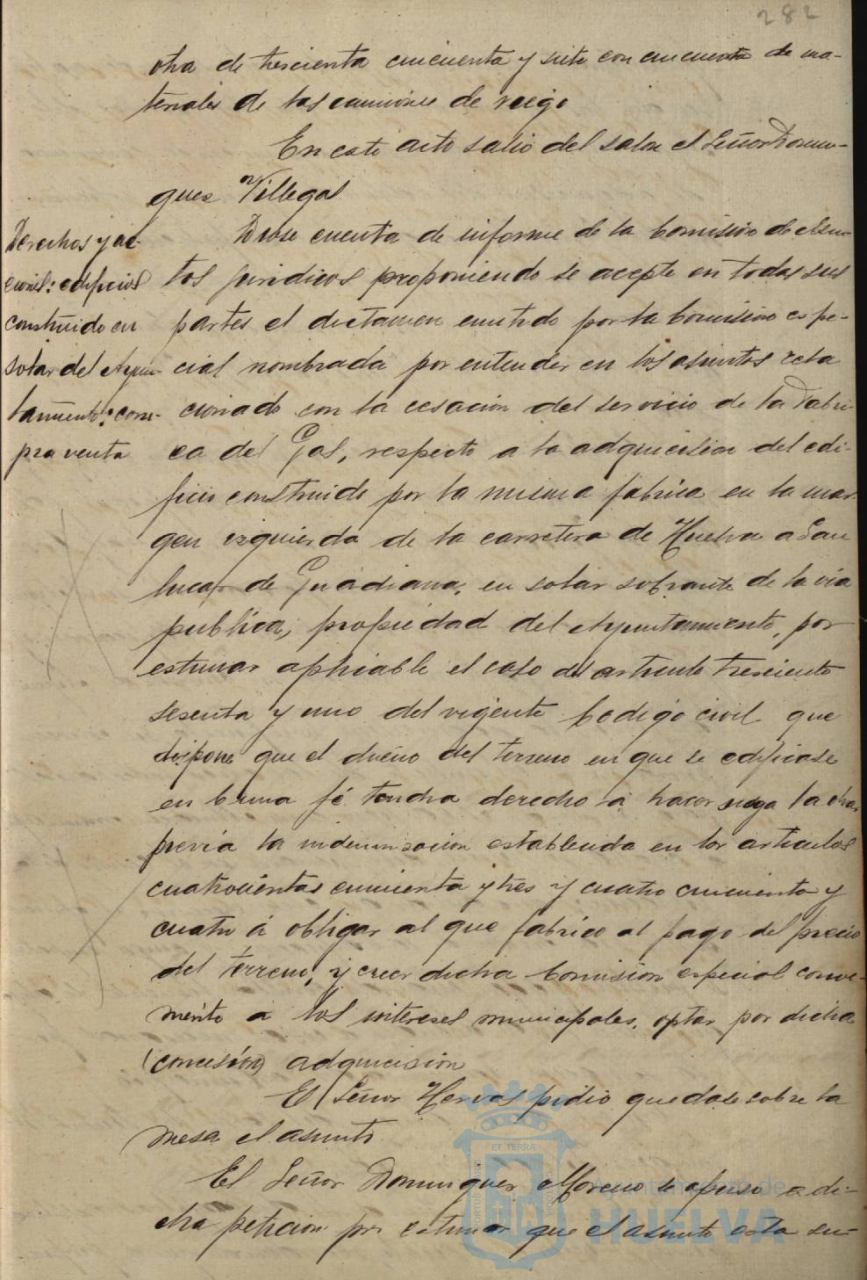 282
otra de trescienta cincuenta y siete con cincuenta de ma-
teriales de los camiones de riego
En este acto salio del salon el Señor Domin-
guez Villegas
Derechos y ac-
ciones: edificios
construido en
solar del Ayun-
tamiento: com-
pra venta
Diose cuenta de informe de la Comisión de Asun-
tos juridicos proponiendo se acepte en todas sus
partes el dictamen emitido por la Comision espe-
cial nombrada por entender en los asuntos rela
cionado con la cesación del servicio de la Fabri-
ca del Gas, respecto a la adquicision del edi-
ficio construido por la misma fabrica en la mar-
gen izquierda de la carretera de Huelva a San
lucar de Guadiana, en solar sobrante de la via
publica, propiedad del Ayuntamiento, por
estimar aplicable el caso del articulo tresciento
sesenta y uno del vigente Codigo civil que
dispone que el dueño del terreno en que se edificase
en buena fé tendra derecho a hacer suya la obra
previa la indemnizacion establecida en los articulos
cuatrocientas cincuenta y tres y cuatro cincuenta y
cuatro á obligar al que fabricó al pago del precio
del terreno, y creer dicha Comision especial conve-
niente a los intereses municipales, optar por dicha
(concesión) adquicision
El Señor Hervas pidio quedase sobre la
mesa el asunto
El Señor Dominguez Moreno se opuso a di-
cha peticion por estimar que el asunto esta su-
Ayuntamiento de
HUELVA